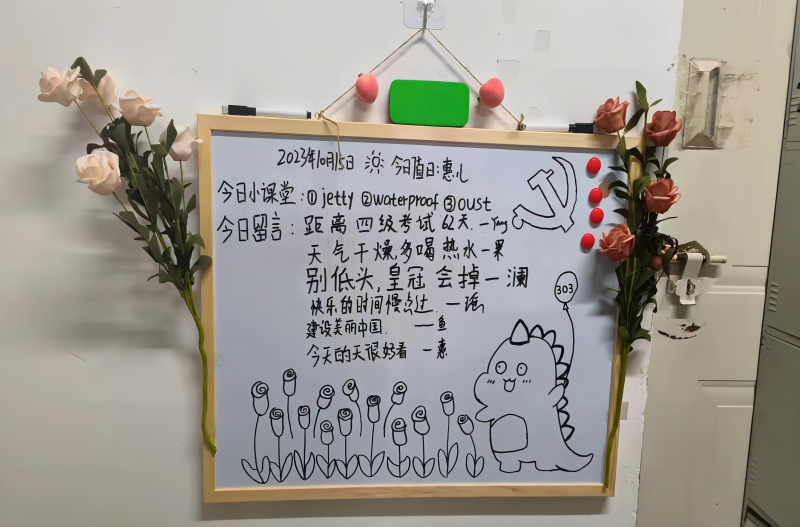 2023年10月15日 今日值日:惠儿
今日小课堂:①jetty ②waterproof ③oust
今日留言:距离四级考试62天.—Yang
天气干燥,多喝热水—果
别低头,皇冠会掉—澜
快乐的时间慢点过.—瑶
建设美丽中国.—鱼
今天的天很好看—惠
303